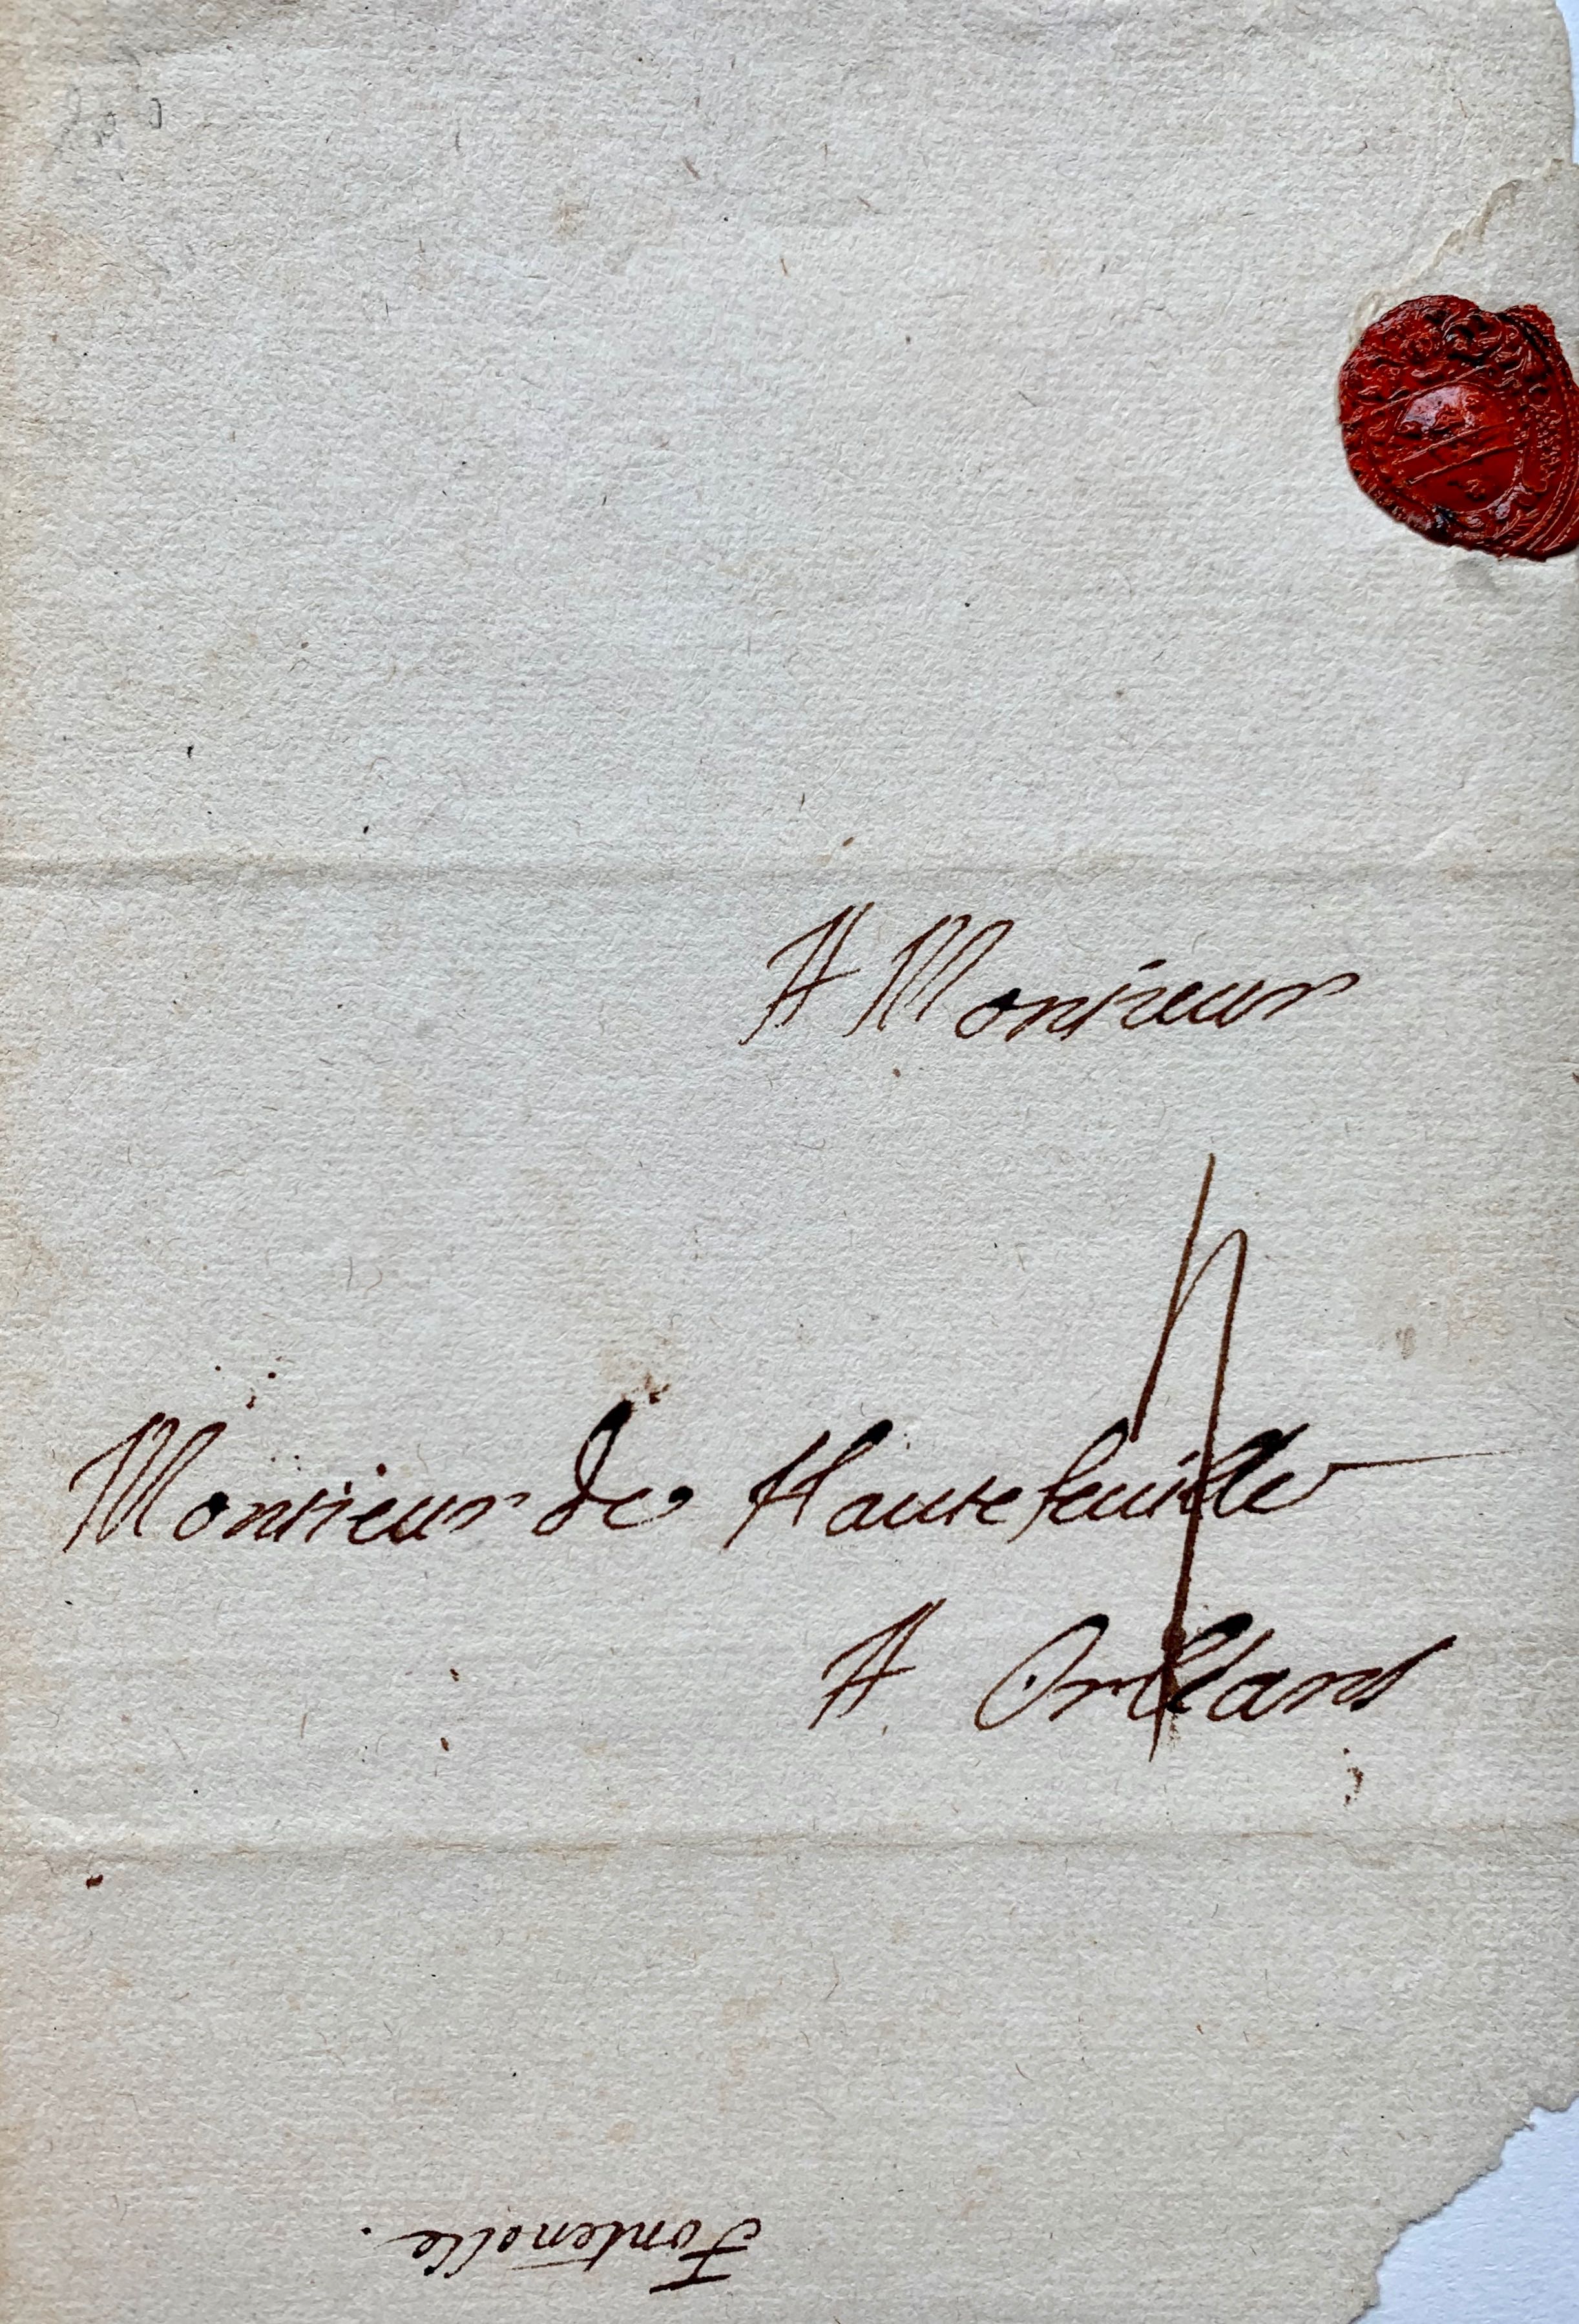 A Monsieur
Monsieur de Hautefeuille
A Orleans
Fontenelle.